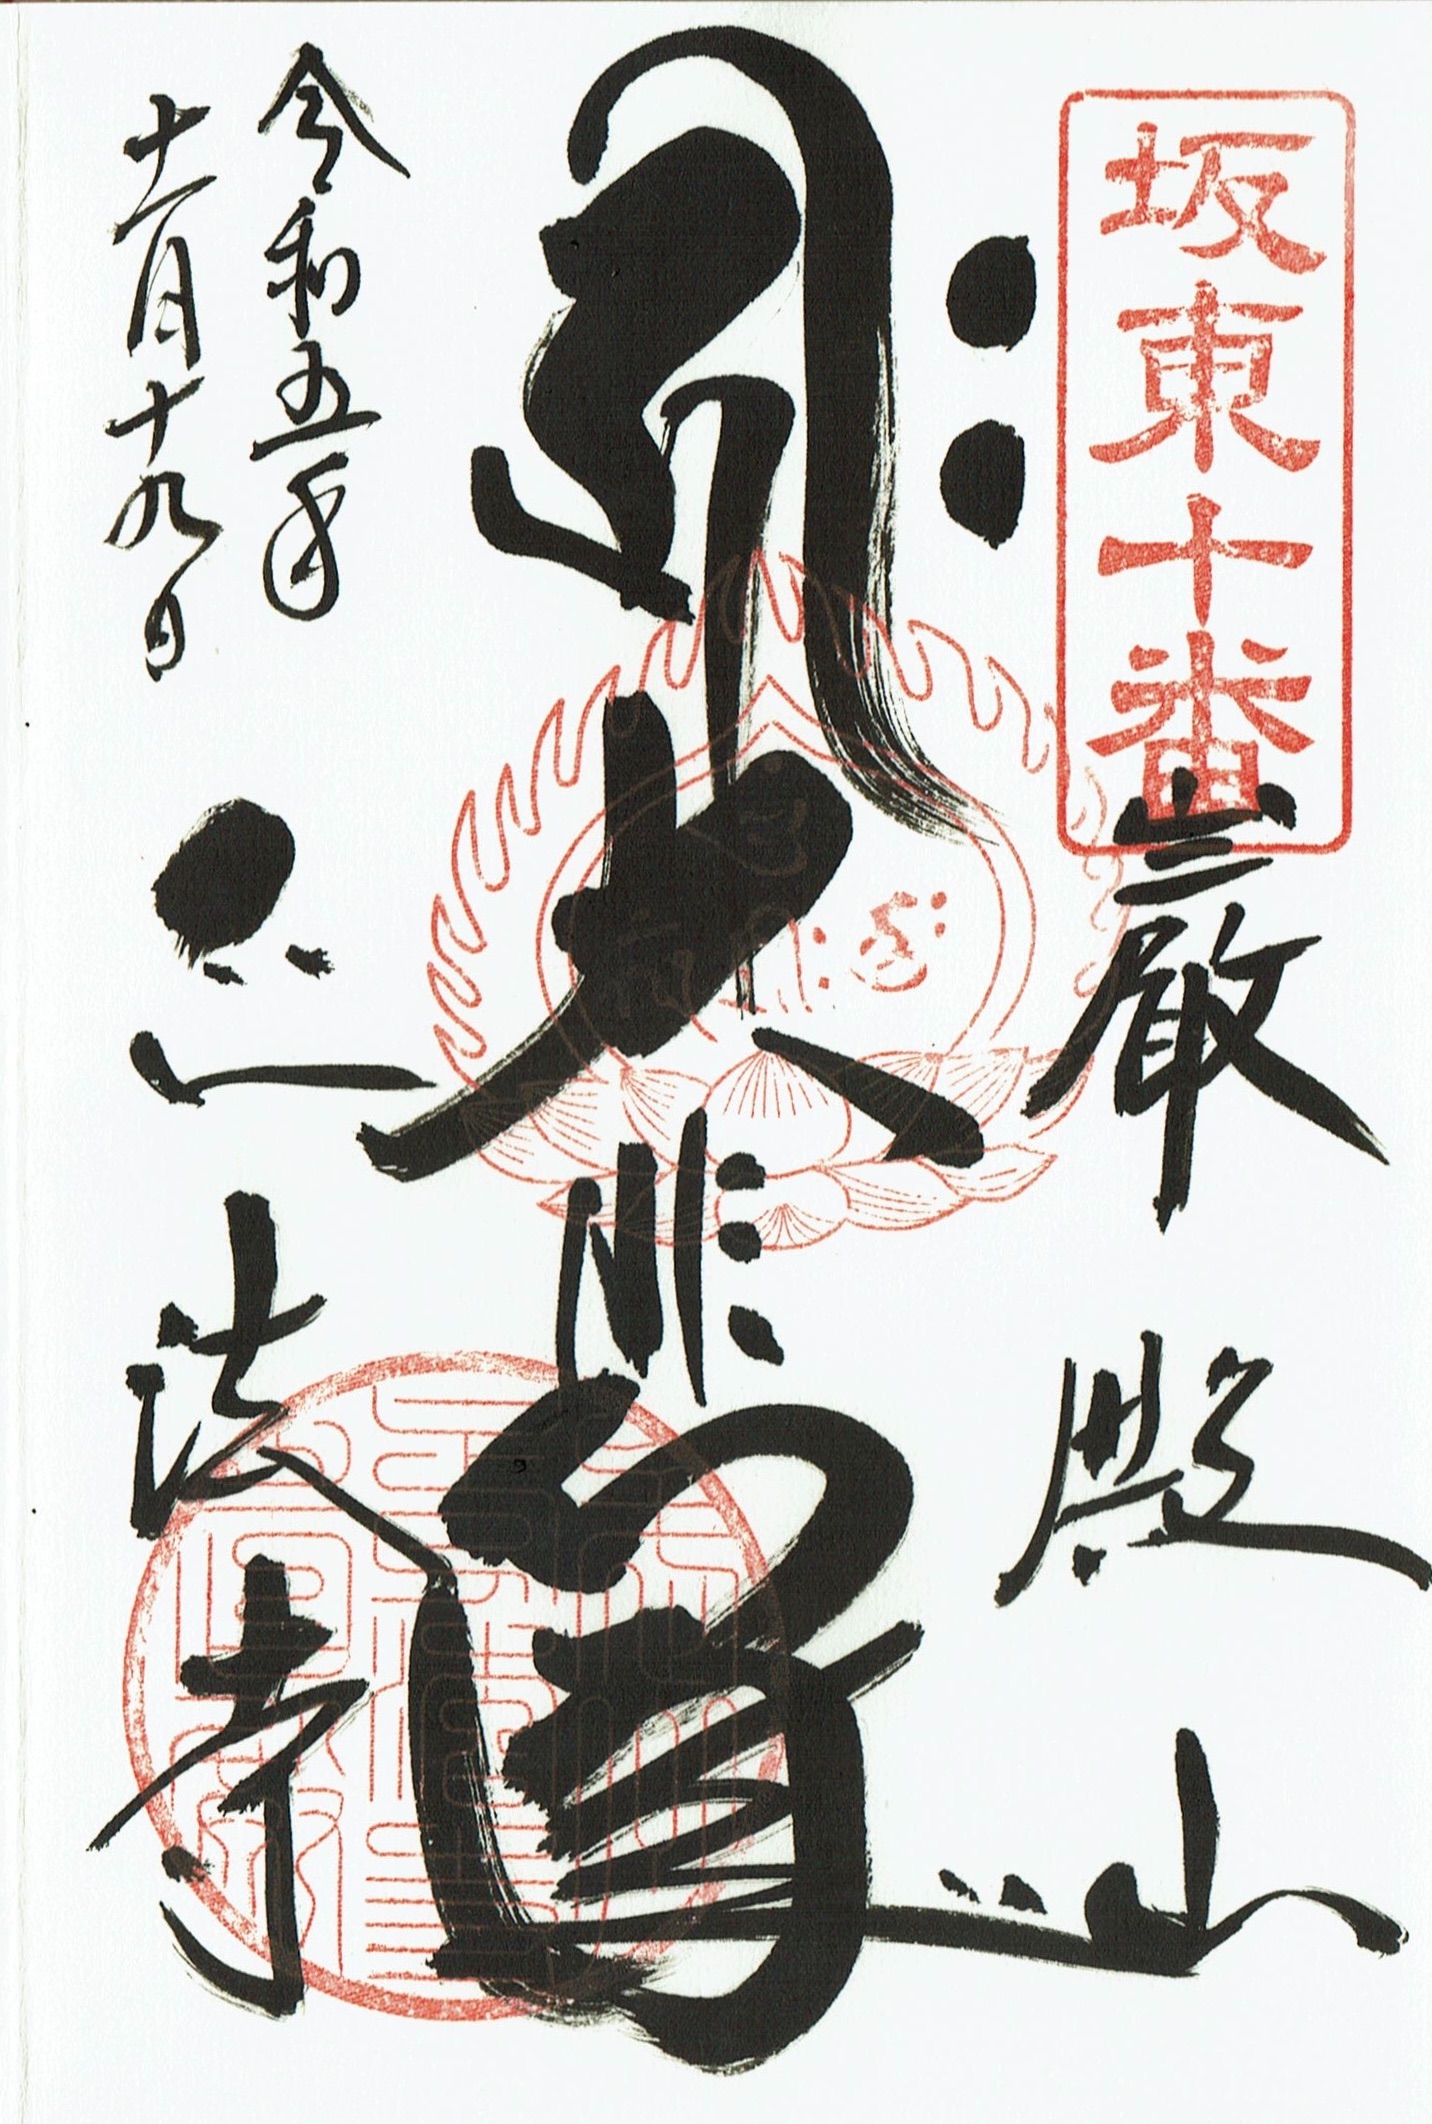 坂東十番
巌殿山
大悲閣
正法寺
令和五年
十一月十九日